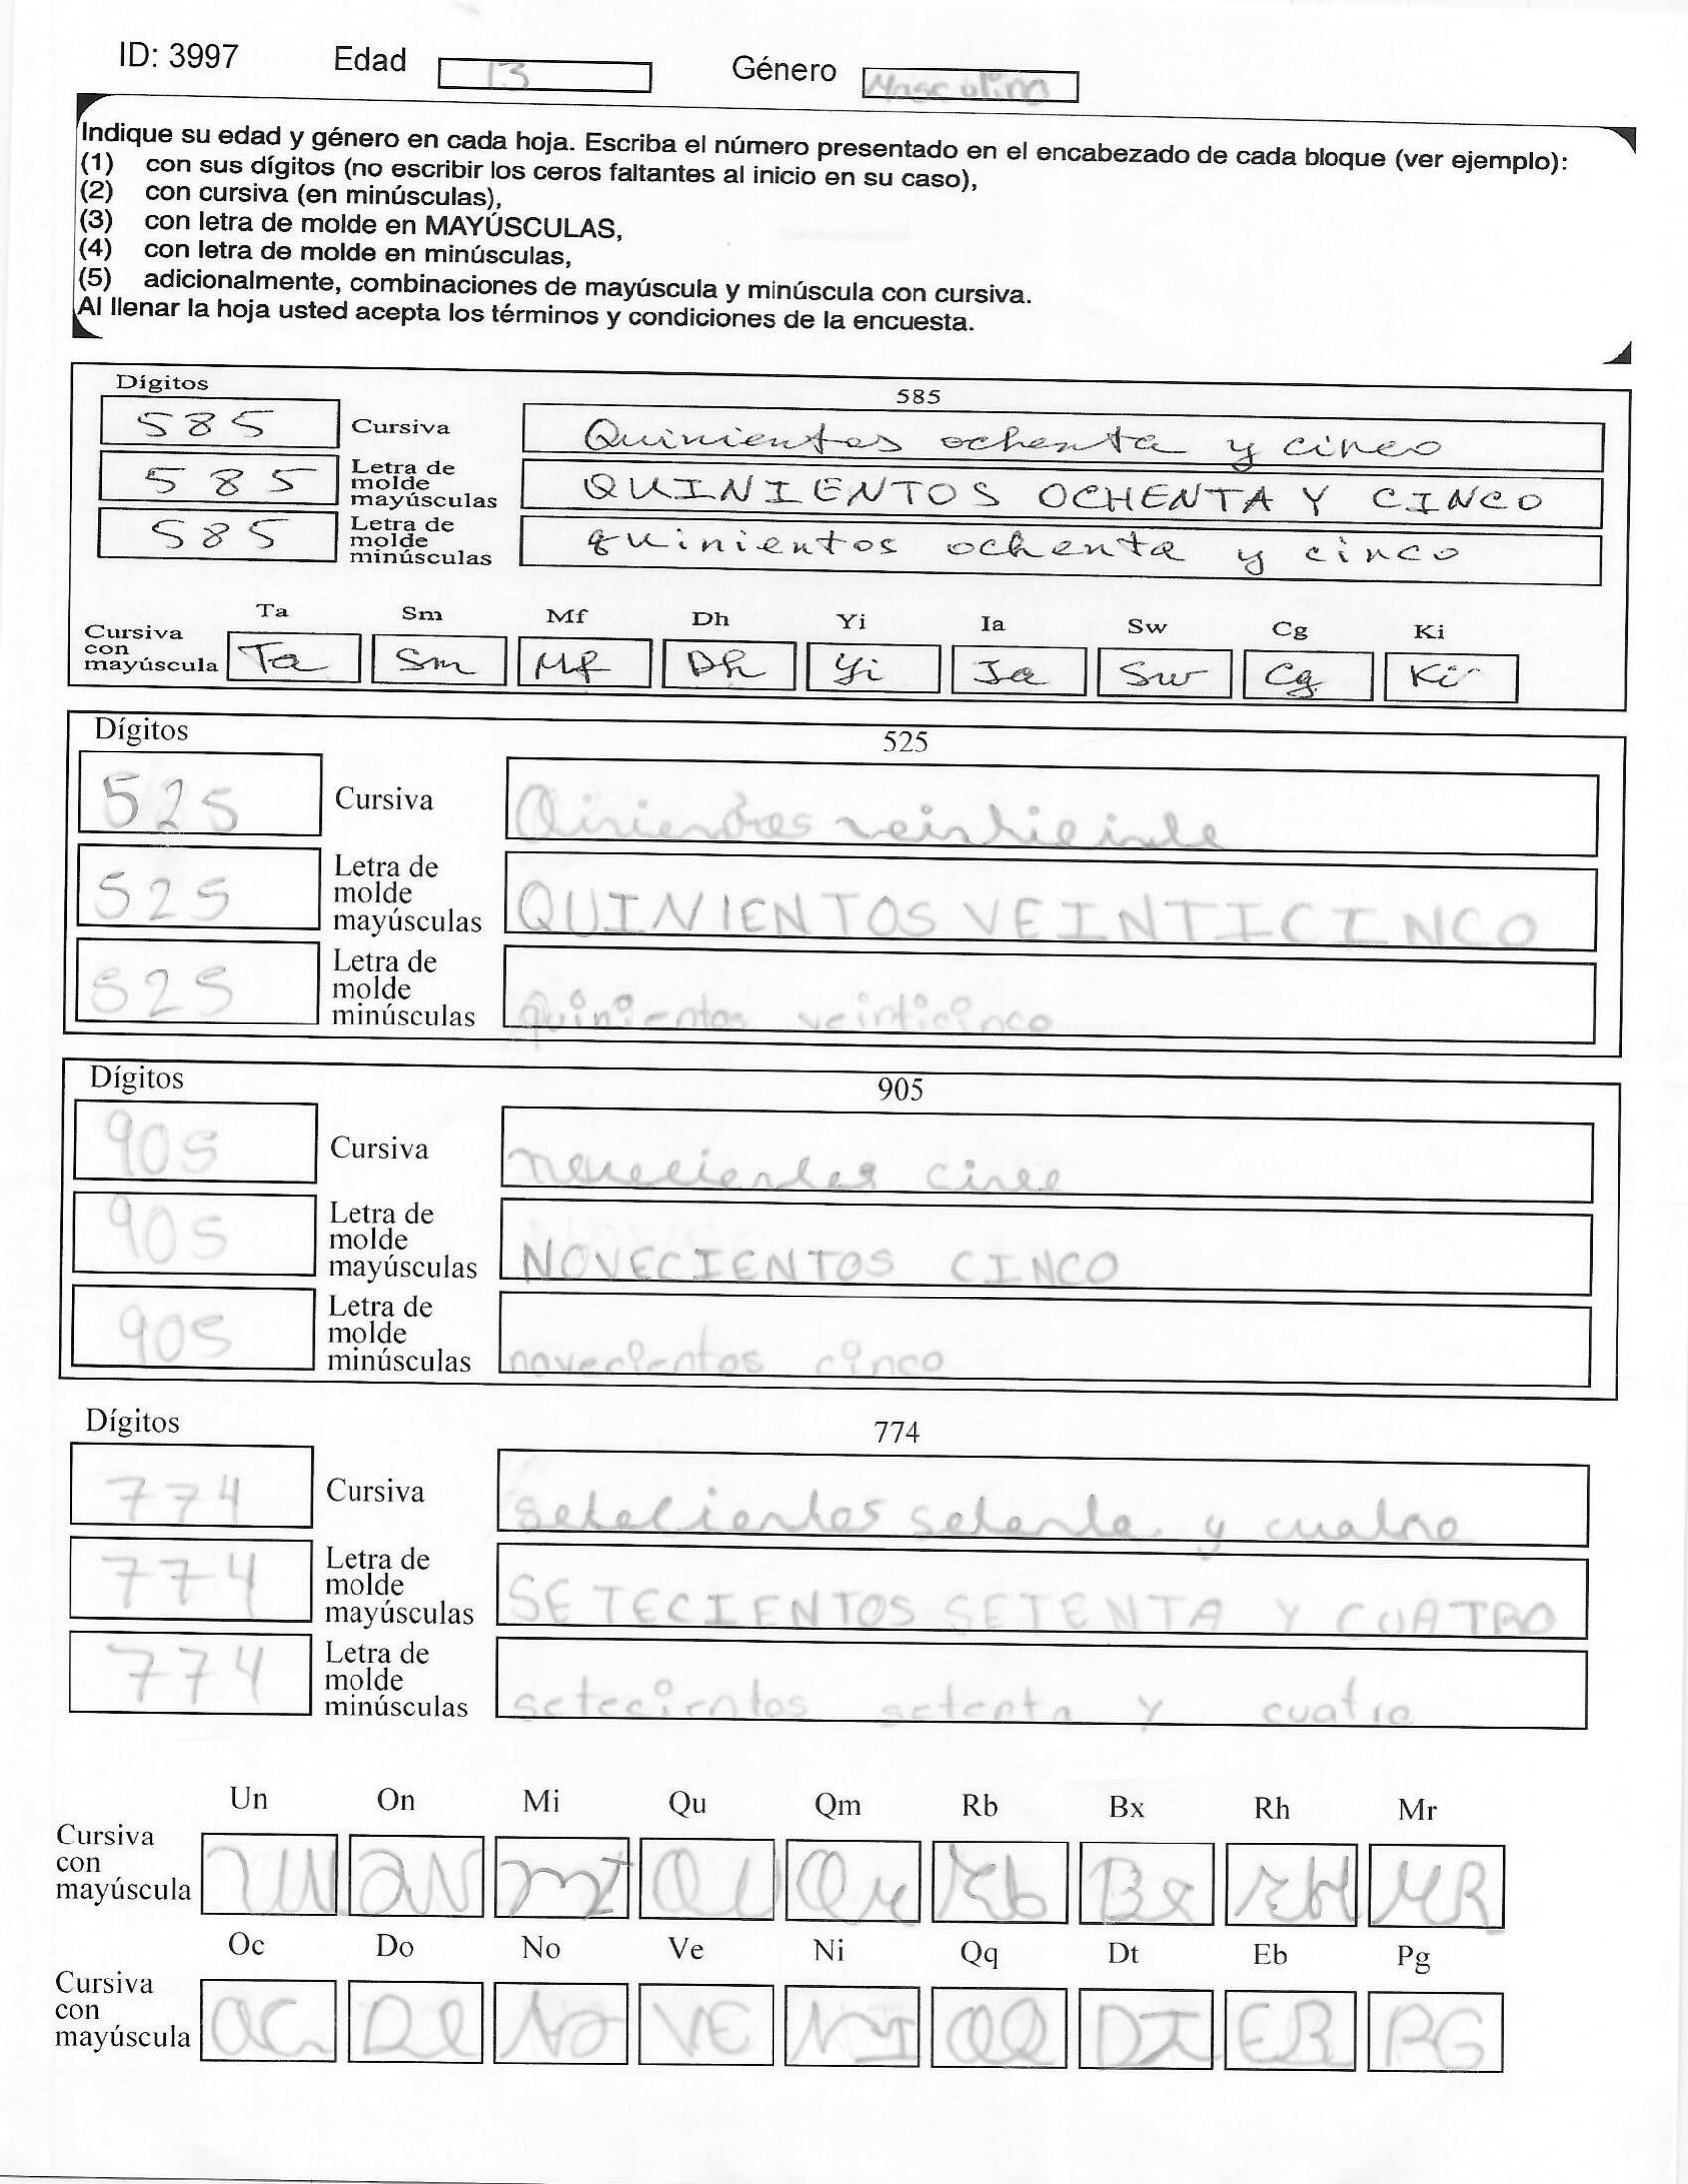 ID: 3997 Edad 13 Género Masculino
Indique su edad y género en cada hoja. Escriba el número presentado en el encabezado de cada bloque (ver ejemplo):
(1) con sus dígitos (no escribir los ceros faltantes al inicio en su caso),
(2) con cursiva (en minúsculas),
(3) con letra de molde en MAYÚSCULAS,
(4) con letra de molde en minúsculas,
(5) adicionalmente, combinaciones de mayúscula y minúscula con cursiva.
Al llenar la hoja usted acepta los términos y condiciones de la encuesta.
Dígitos 585
585 Cursiva Quinientos ochenta y cinco
585 Letra de molde mayúsculas QUINIENTOS OCHENTA Y CINCO
585 Letra de molde minúsculas quinientos ochenta y cinco
Ta Sm Mf Dh Yi Ia Sw Cg Ki
Cursiva con mayúscula Ta Sm Mf Dh Yi Ia Sw Cg Ki
Dígitos 525
525 Cursiva
525 Letra de molde mayúsculas QUINIENTOS VEINTICINCO
525 Letra de molde minúsculas quinientos veinticinco
Dígitos 905
905 Cursiva
905 Letra de molde mayúsculas NOVECIENTOS CINCO
905 Letra de molde minúsculas novecientos cinco
Dígitos 774
774 Cursiva setecientos setenta y cuatro
774 Letra de molde mayúsculas SETECIENTOS SETENTA Y CUATRO
774 Letra de molde minúsculas setecientos setenta y cuatro
Un On Mi Qu Qm Rb Bx Rh Mr
Cursiva con mayúscula UN ON mI QU Qm Rb Bx RH MR
Oc Do No Ve Ni Qq Dt Eb Pg
Cursiva con mayúscula OC DO NO VE NI QQ DT EB PG